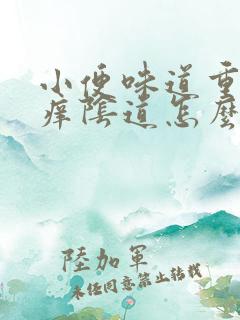 小便味道重
痒陰道怎麽
陸加軍
未任同意禁止转载